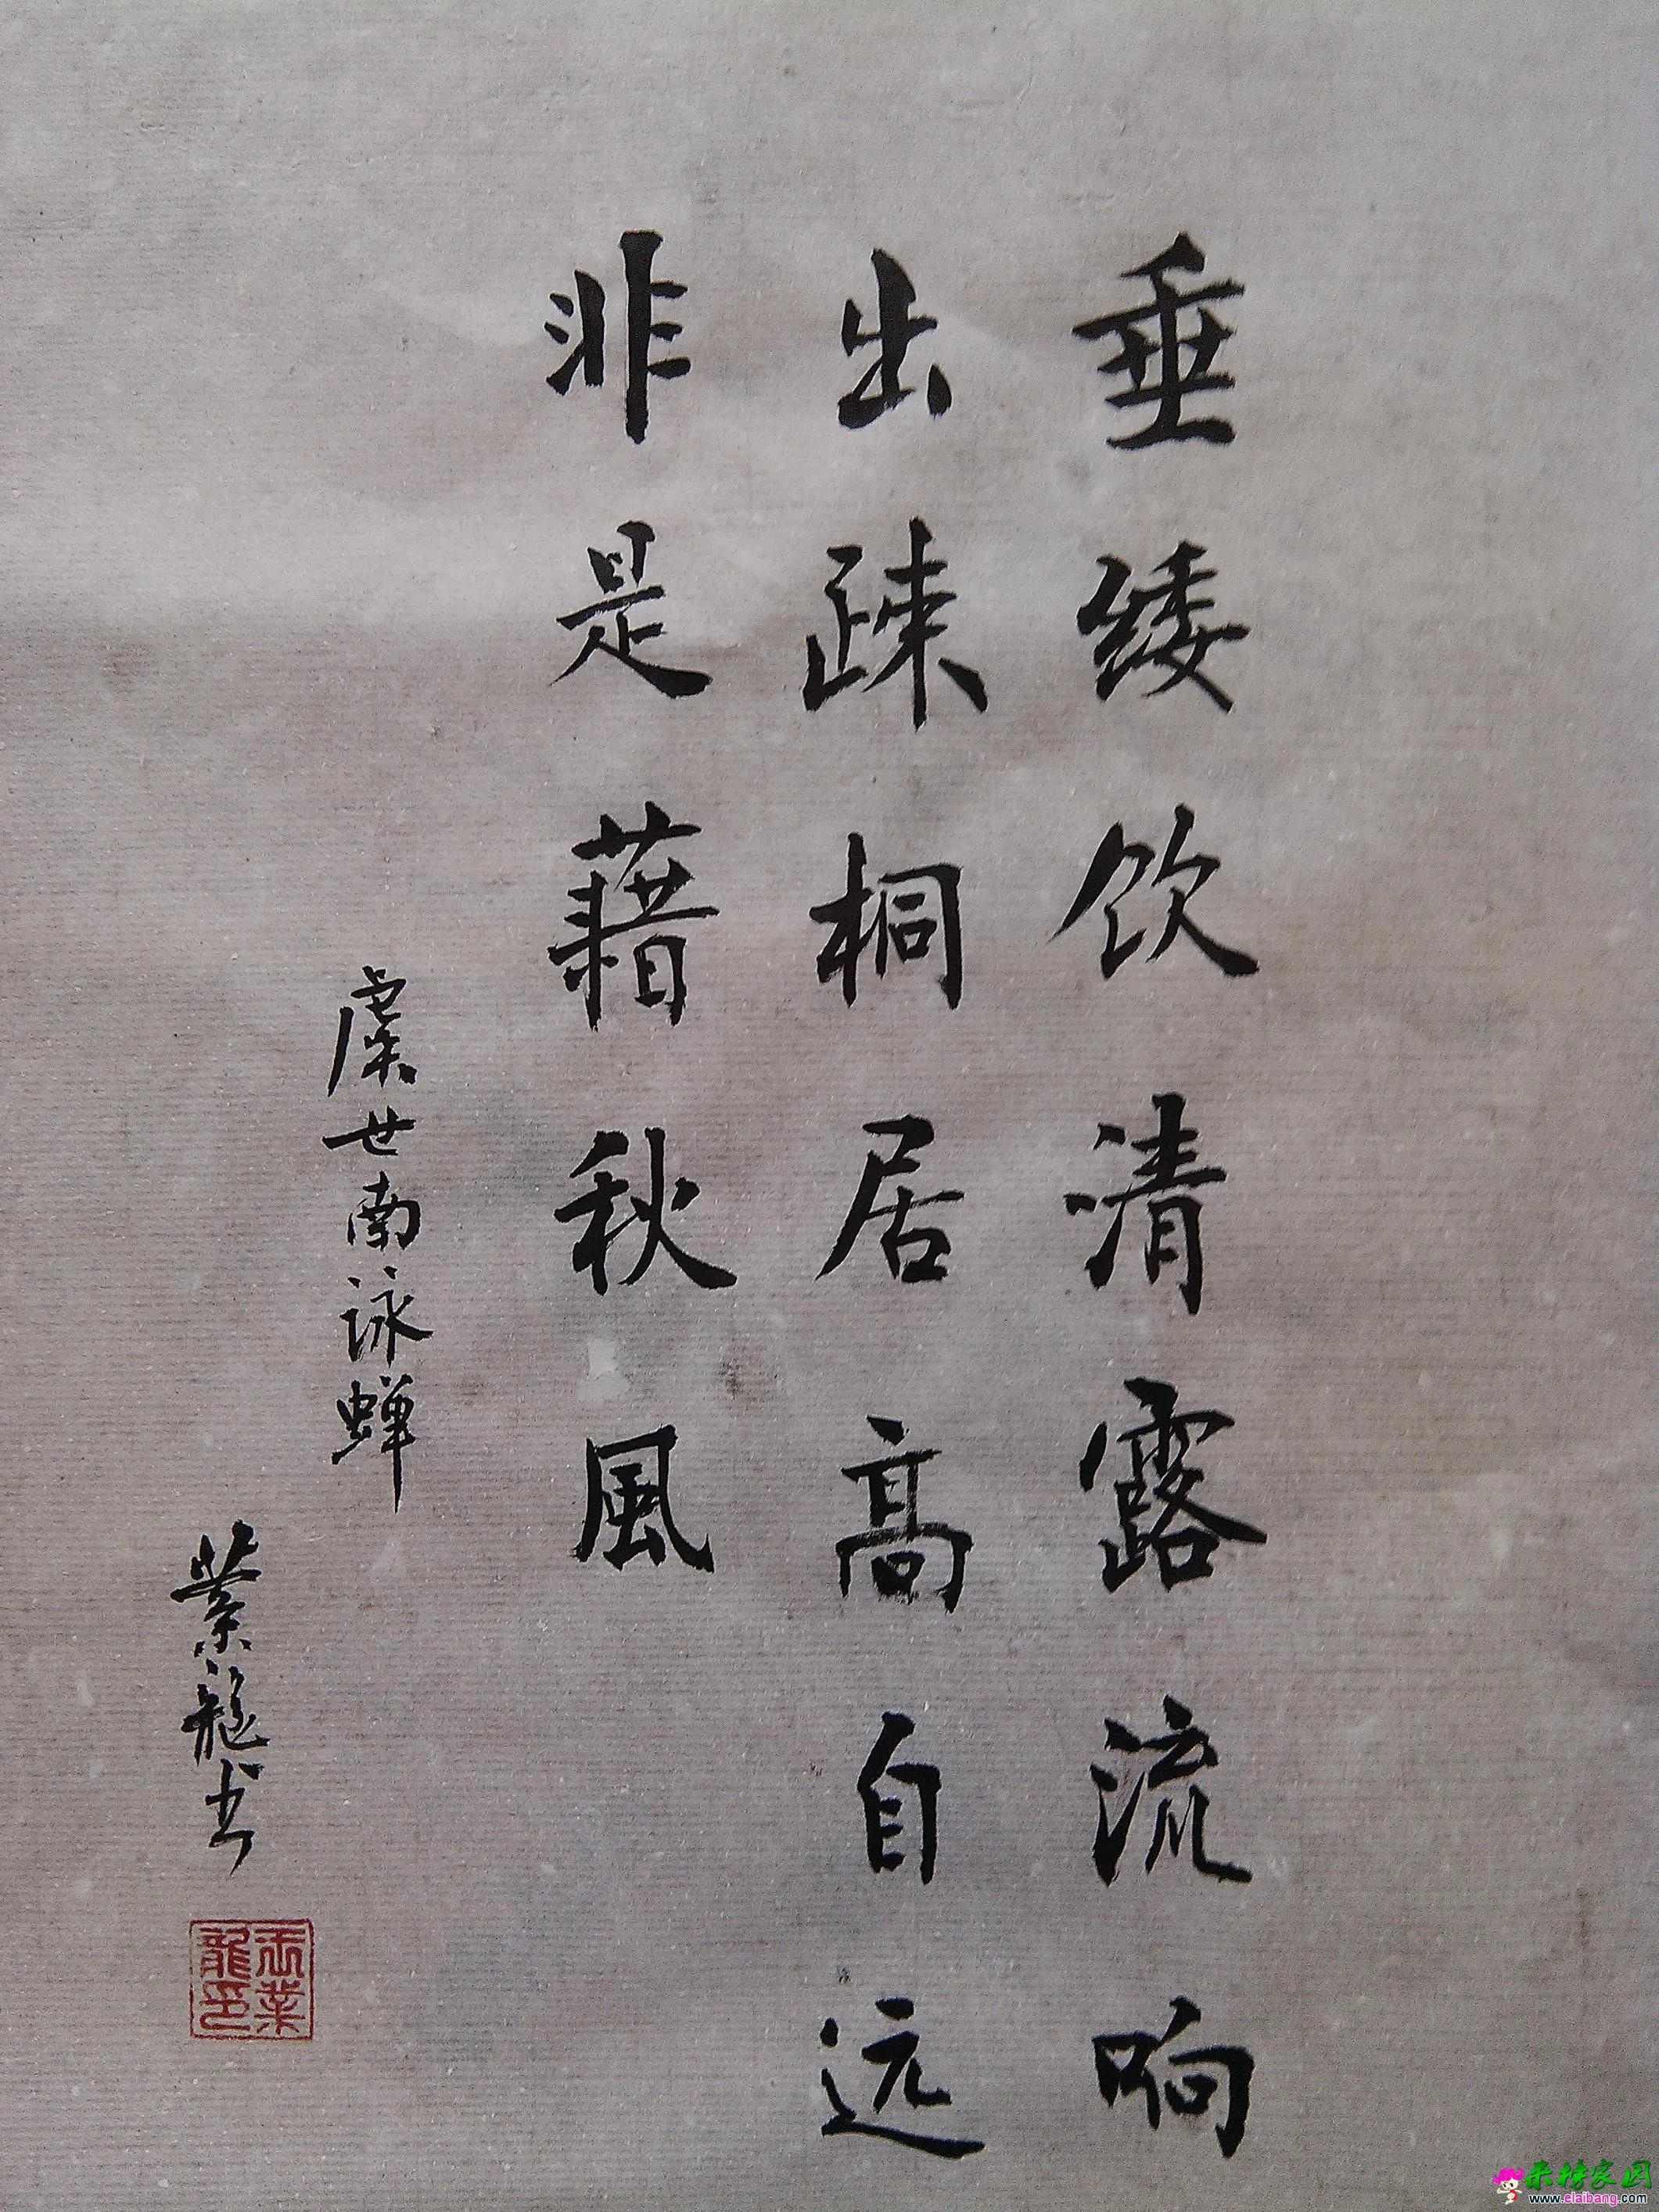 垂緌饮清露流响
出疎桐居高自远
非是藉秋風
虞世南詠蝉
業龍书
玉業
龍印
来榜家园
www.elaibang.com